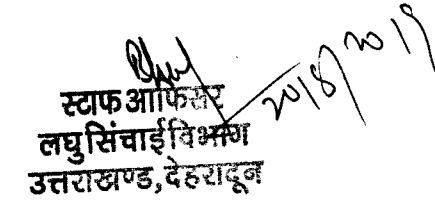 20/8/2019
स्टाफ आफिसर
लघु सिंचाई विभाग
उत्तराखण्ड, देहरादून